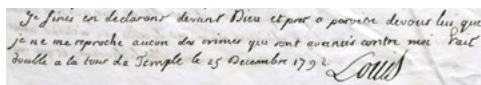 Je finis en declarant devant Dieu et pret a paroitre devant lui que
je ne me reproche aucun des crimes qui sont avancés contre moi Fait
double a la tour du Temple le 25 Decembre 1792
Louis